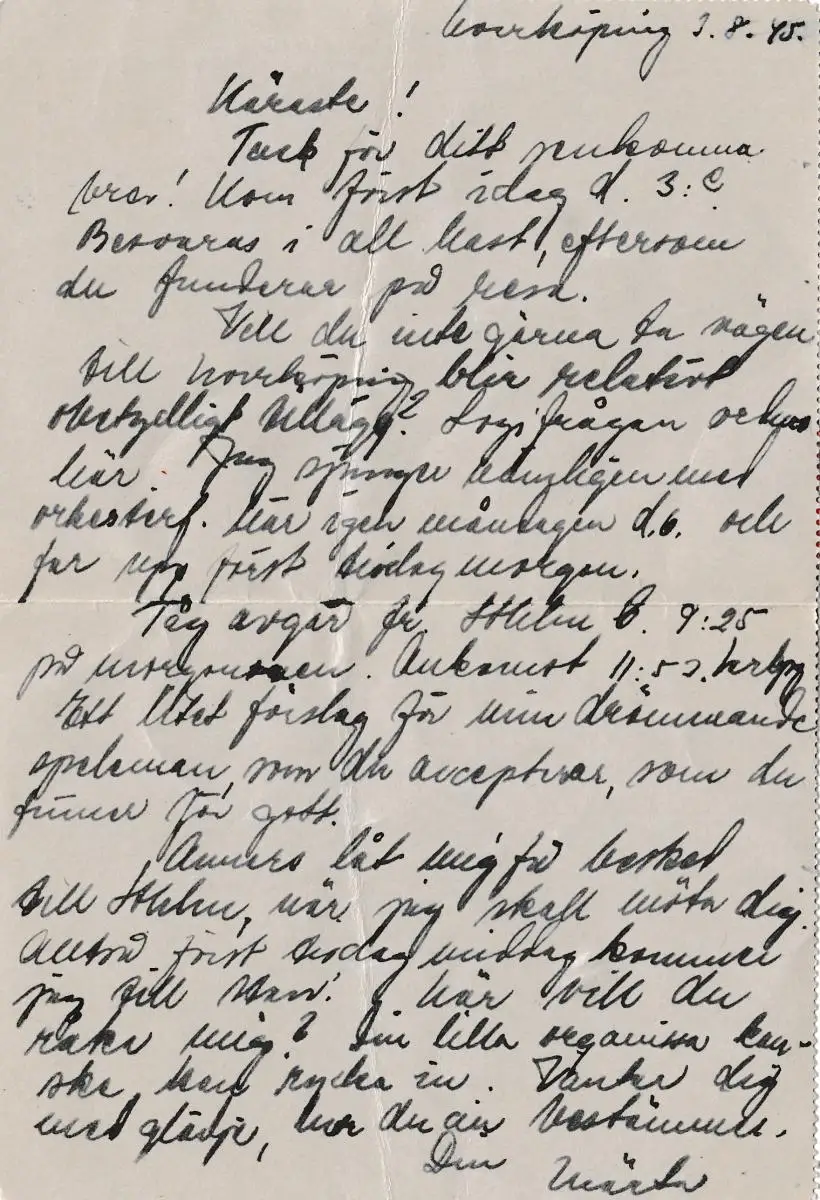 Norrköping 3.8.45.
Käraste!
Tack för ditt senkomna
brev! Kom först idag d. 3:e
Besvaras i all hast, eftersom
du funderar på resa.
Vill du inte gärna ta vägen
till Norrköping blir relativt
obetydligt tillägg? Logifrågan ordnas
här. Jag sjunger nämligen med
orkesterf. här igen måndagen d.6. och
far upp först tisdag morgon.
Tåg avgår fr. Sthlm C. 9:25
på morgonen. Ankomst 11:53. Nrkpg
Ett litet förslag för min drömmande
speleman, som du accepterar, som du
finner för gott.
Annars låt mig få besked
till Sthlm, när jag skall möta dig.
Alltså först tisdag middag kommer
jag till stan! När vill du
råka mig? Din lilla organissa kan-
ske kan rycka in. Väntar dig
med glädje, hur du än bestämmer.
Din Märta